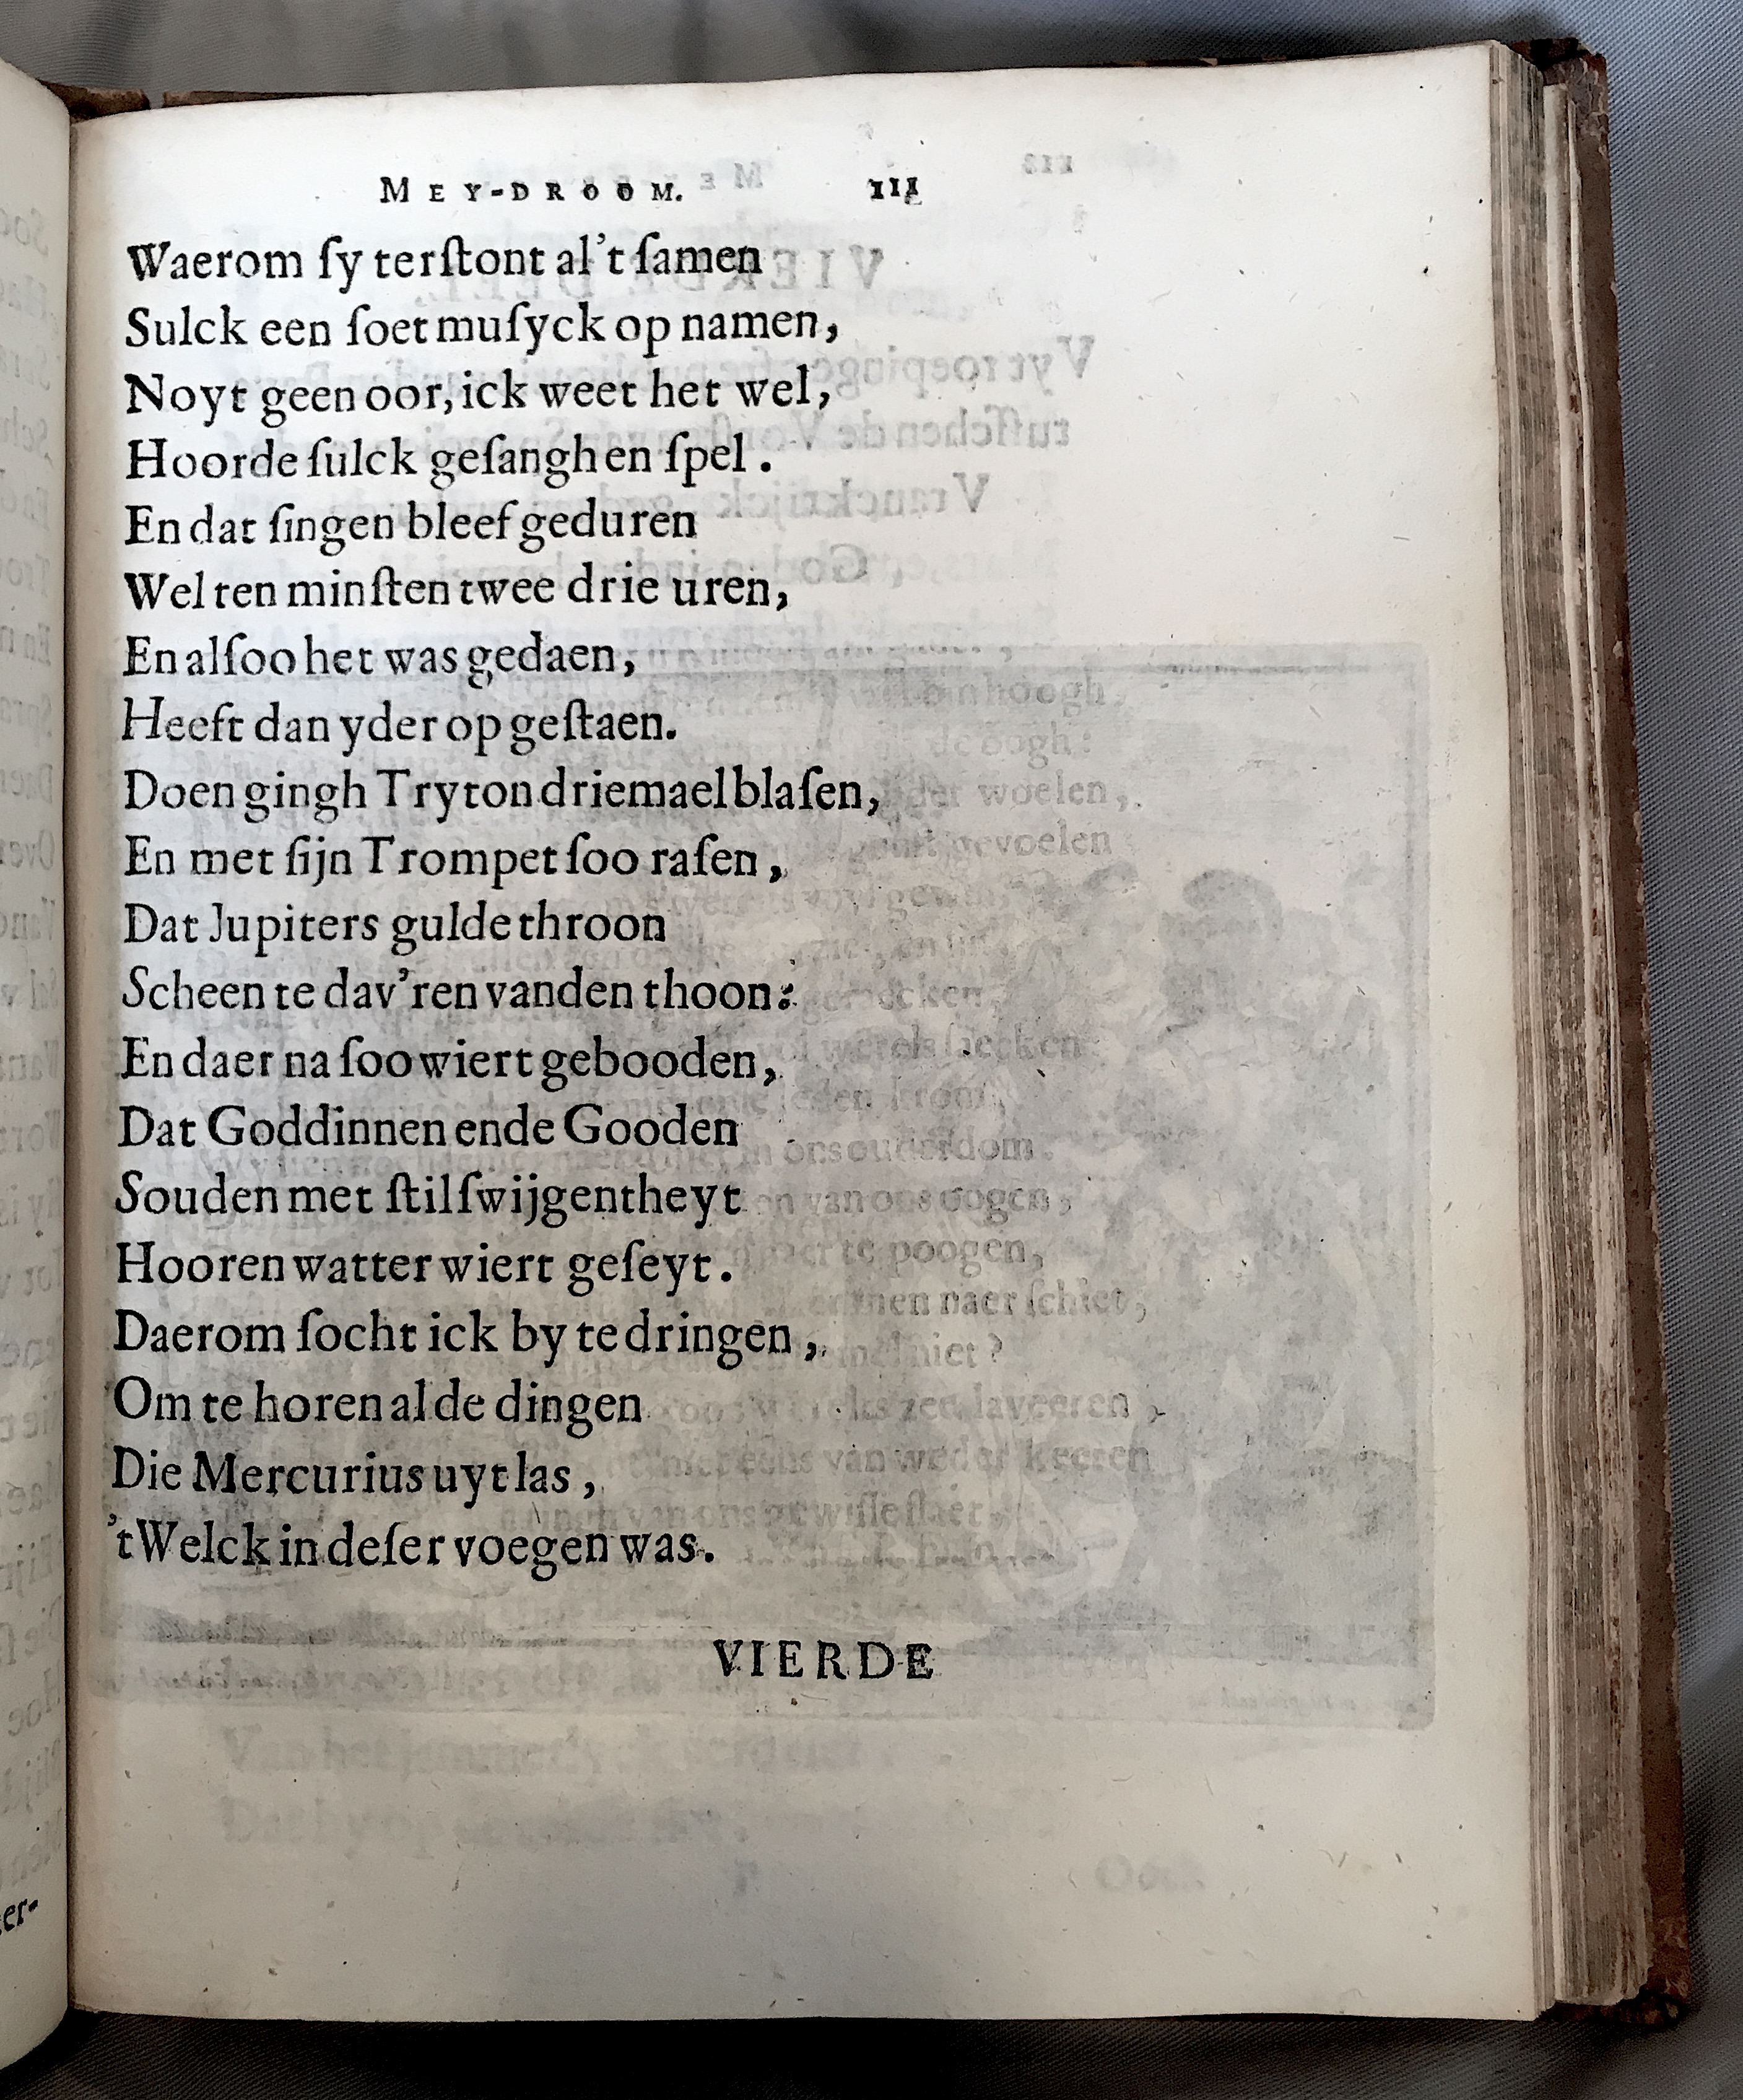 MEY-DROOM. 111
Waerom ſy terſtont al't ſamen
Sulck een ſoet muſyck op namen,
Noyt geen oor, ick weet het wel,
Hoorde ſulck geſangh en ſpel.
En dat ſingen bleef geduren
Wel ten minſten twee drie uren,
En alſoo het was gedaen,
Heeft dan yder op geſtaen.
Doen gingh Tryton driemael blaſen,
En met ſijn Trompet ſoo raſen,
Dat Jupiters gulde throon
Scheen te dav'ren vanden thoon:
En daer na ſoo wiert gebooden,
Dat Goddinnen ende Gooden
Souden met ſtilſwijgentheyt
Hooren watter wiert geſeyt.
Daerom ſocht ick by te dringen,
Om te horen al de dingen
Die Mercurius uyt las,
'tWelck in deſer voegen was.
VIERDE